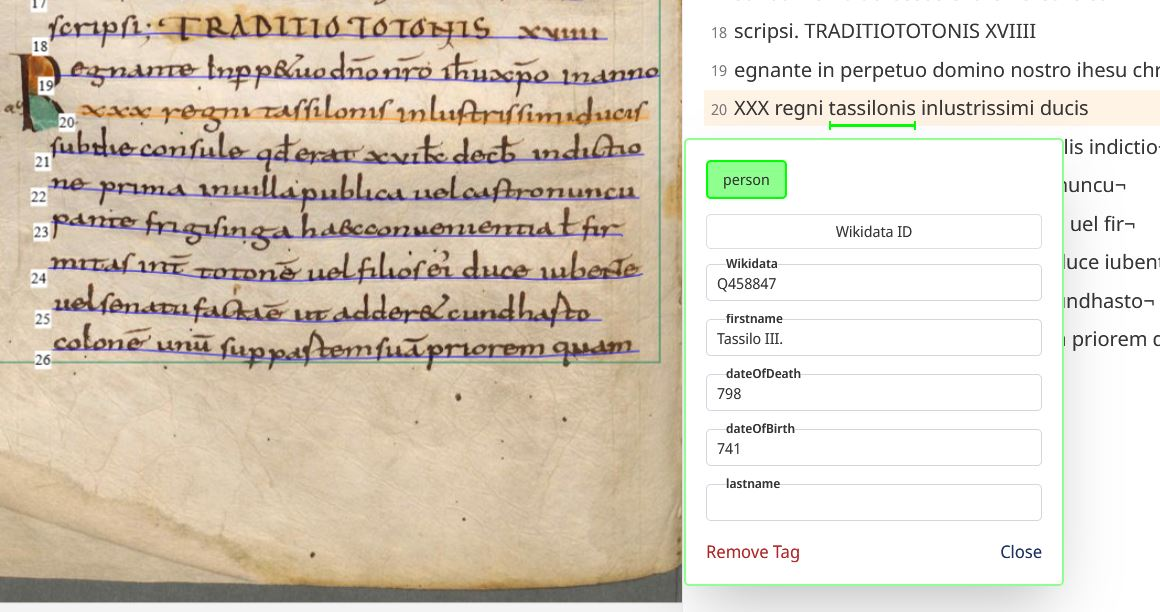 17
18 scripsi; TRADITIO TOTONIS xviiii
19 Regnante Inpp&uo dn̄o nr̄o ih̄u xp̄o inanno
20 xxx regni tassilonis inlustrissimi ducis
21 subdie consule qđ erat xvi kł decb̄ indictio
22 ne prima inuilla publica uel castro nuncu
23 pante frigisinga haec conuenientia ł fir
24 mitas int̄ totonē uel filios ei duce iubente
25 uel senatu factāē ut adder& cundhasto
26 colonē unū suppastem suā priorem quam
18 scripsi. TRADITIOTOTONIS XVIIII
19 egnante in perpetuo domino nostro ihesu chr
20 XXX regni tassilonis inlustrissimi ducis
lis indictio¬
nuncu¬
uel fir¬
duce iubent
undhasto¬
priorem
person
Wikidata ID
Wikidata
Q458847
firstname
Tassilo III.
dateOfDeath
798
dateOfBirth
741
lastname
Remove Tag Close